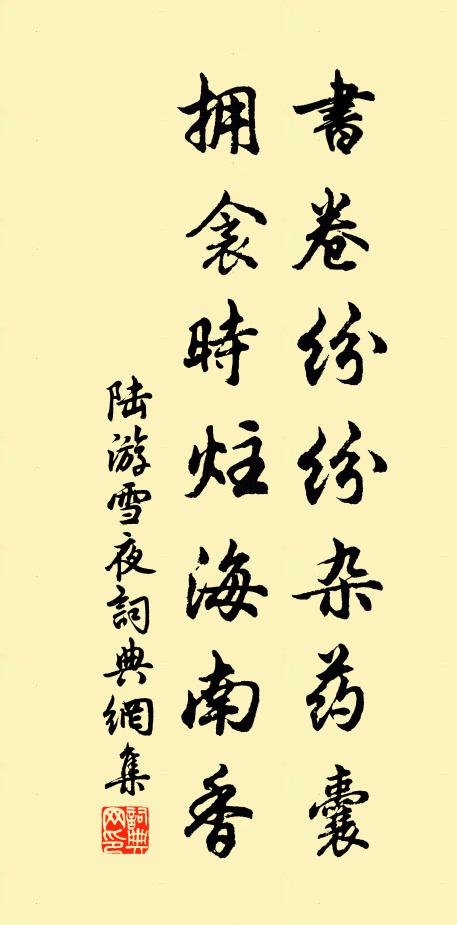 書卷纷纷杂药囊
拥衾時炷海南香
陆游雪夜詞典網集
詞典网印